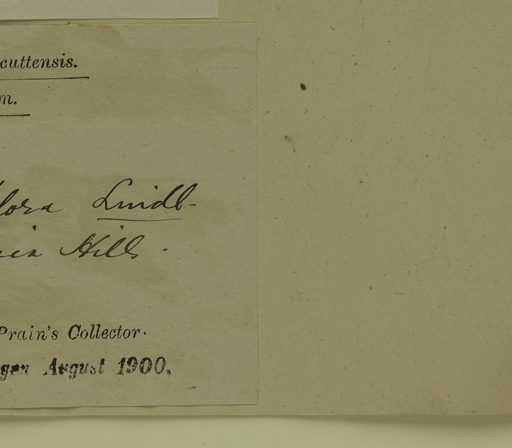 cuttensis.
m.
lora Lindl.
sia Hills.
Prain's Collector.
gen August 1900.